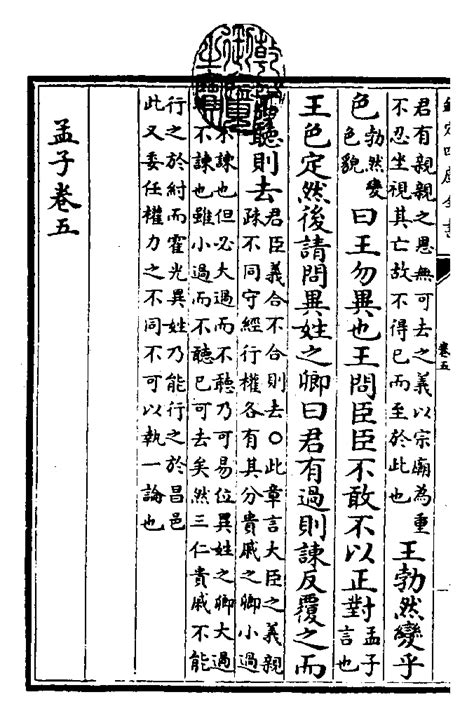 欽定四庫全書
卷五
君有親親之恩無可去之義以宗廟為重
不忍坐視其亡故不得已而至於此也
王勃然變乎
色
勃然變
色貌
曰王勿異也王問臣臣不敢不以正對
孟子
言也
王色定然後請問異姓之卿曰君有過則諫反覆之而
聽則去
君臣義合不合則去○此章言大臣之義親
疎不同守經行權各有其分貴戚之卿小過
不諫也但必大過而不聽乃可易位異姓之卿大過
不諫也雖小過而不聽已可去矣然三仁貴戚不能
行之於紂而霍光異姓乃能行之於昌邑
此又委任權力之不同不可以執一論也
孟子卷五